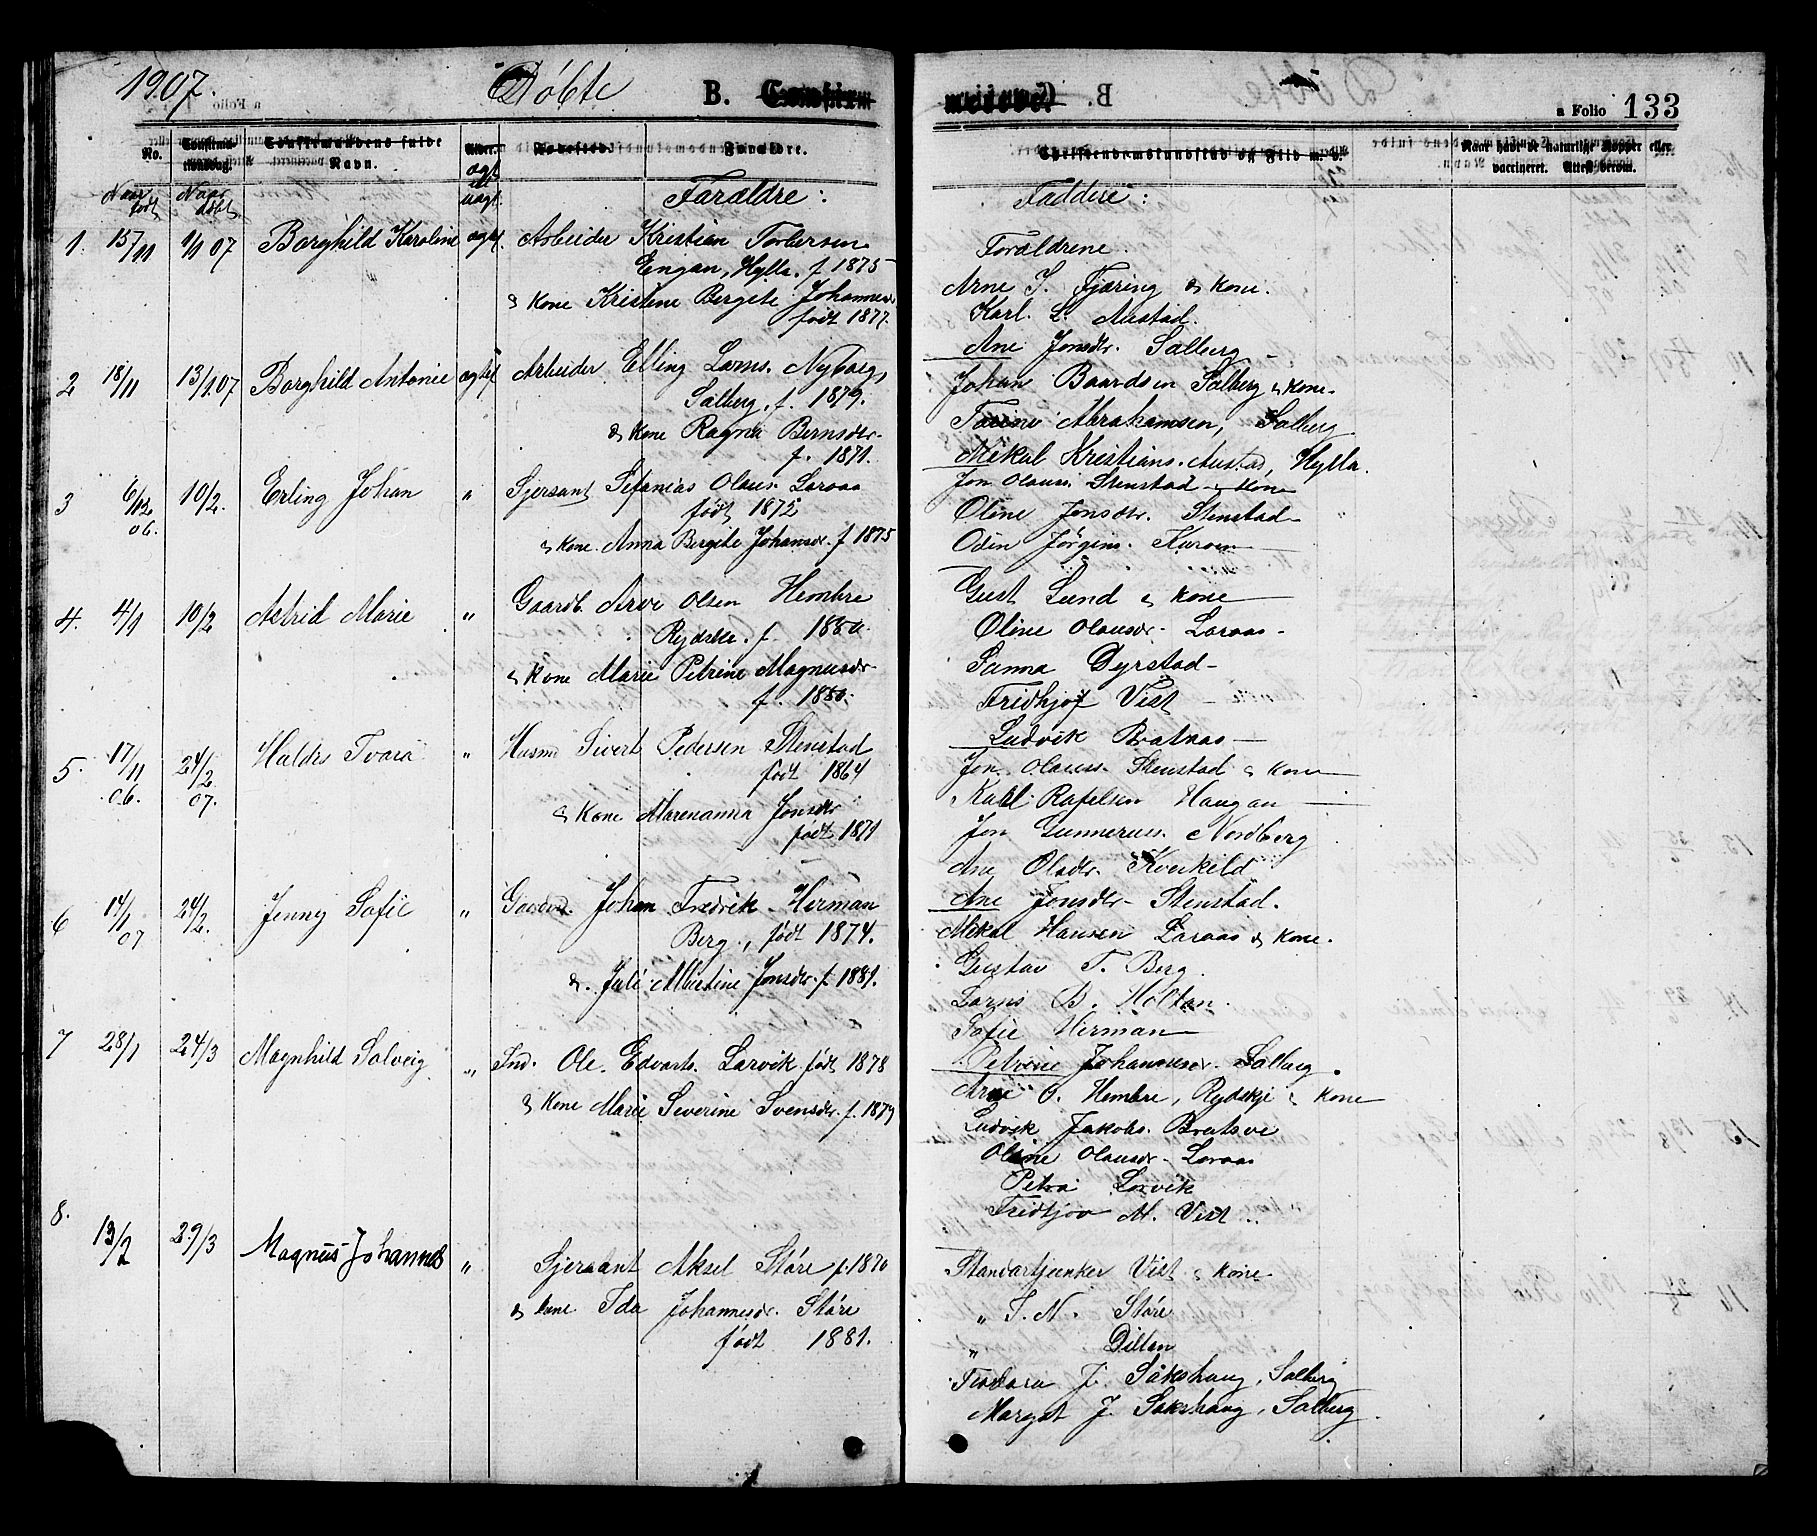 1907.
Döbte
B.
133
a Folio
No.
Navn.
Alder.
Forældre.
Naar født
Naar døbt
ægt. el. uægt.
Forældre:
Faddere:
1. 15/11 1/1 07 Borghild Karoline ægte Arbeider Kristian Torbersen
Engan, Hylla. f. 1875
& Kone Kristine Bergite Johannesdr
født 1877.
Forældrene
Arne J. Fjæring & Kone.
Karl L. Austad.
Ane Jonsdr. Salberg
2 18/11 13/1.07 Borghild Antonie ægte Arbeider Elling Larns. Nyborg,
Salberg. f. 1879.
& Kone Ragna Bernsdtr.
f. 1871.
Johan Baardsen Salberg & Kone.
Abrahamsen, Salberg
Mikal Kristians. Austad, Hylla.
3 6/12 06. 10/2. Erling Johan " Sjersant Sefanias Olaus. Laraas
født 1872
& Kone. Anna Bergite Johansdr. f 1875
Jon Olauss. Stenstad & Kone
Oline Jonsdtr. Stenstad
Odin Jørgens.
4. 4/1 10/2 Astrid Marie " Gaardb. Arne Olsen Hembre
f. 1880.
& Kone Marie Petrine Magnusdr
f. 1880.
Gust Lund & Kone
Oline Olausdr. Laraas
Sanna Dyrstad
Fridhjof Vist
Ludvik Brataas
5. 17/11 06. 24/2 07. " Husmd Sivert Pedersen Stenstad
født 1864
& Kone Marenanna Jonsdtr
født 1871
Jon Olauss. Stenstad & Kone
Karl Rafelsen Haugan
Jon Gunneruss. Nordberg
Ane Olsdr. Kverkild
Ane Jonsdtr. Stenstad.
6 14/1 07 24/2. Jenny Sofie " Gaardbr. Johan Fredrik Herman
Berg., født 1874.
&. Juli Albertine Jonsdtr f. 1881.
Mikal Hansen Laraas & Kone.
Gustav T. Berg
Larns B. Holtan.
Sofie Herman
Petrine Johannesdr. Salberg
7 28/1 24/3 Magnhild Solveig " Ind. Ole. Edvarts. Larvik født 1878
& Kone Marie Severine Svensdr. f. 1879
Arne O. Hembre, Rydskje & Kone
Ludvik Jakobs. Bratsve
Oline Olausdr. Laraas
Petra Larvik
Fridtjov M. Vist
8. 13/2 29/3 Magnus Johannes " Sjersant Aksel Støre f. 1870
& Kone Ida Johannesdr. Støre
født 1881.
Standartjunker Vist & Kone
" J. N. Støre
" Dillan
Teodora J. Sakshaug, Salberg
Margit J. Sakshaug, Salberg.